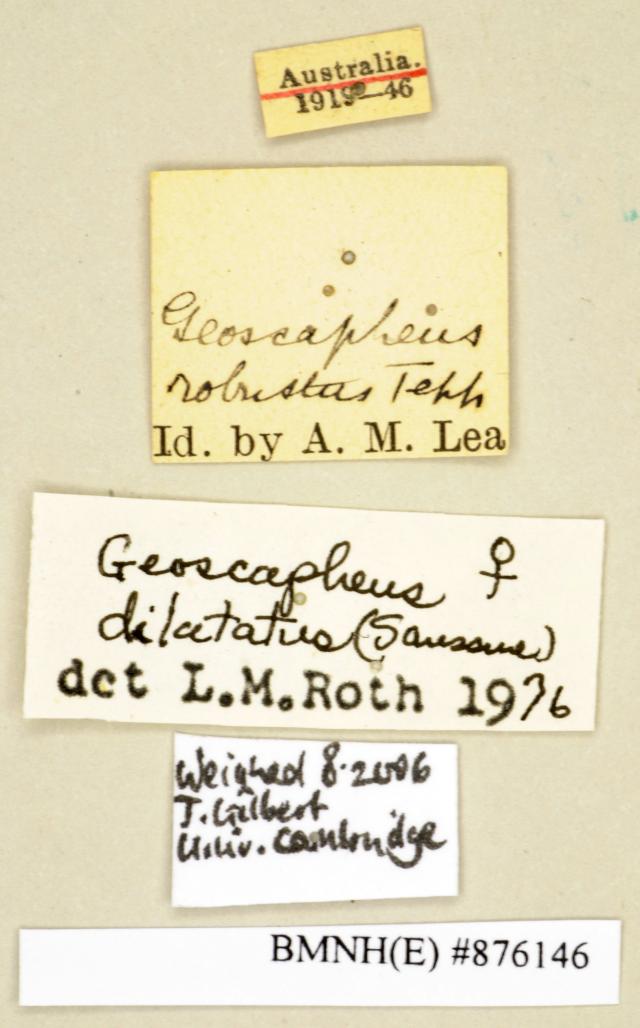 Australia.
1919—46
Geoscapheus
robustus Tepp
Id. by A. M. Lea
Geoscapheus ♀
dilatatus (Saussure)
det L.M.Roth 1976
Weighed 8.2006
J. Gilbert
Univ. Cambridge
BMNH(E) #876146